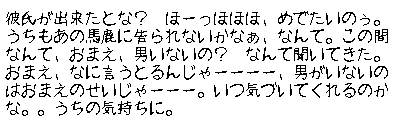 彼氏が出来たとな？　ほーっほほほ、めでたいのぅ。
うちもあの馬鹿に告られないかなぁ、なんて。この間
なんて、おまえ、男いないの？　なんて聞いてきた。
おまえ、なに言うとるんじゃーーーー、男がいないの
はおまえのせいじゃーーー。いつ気づいてくれるのか
な。。うちの気持ちに。